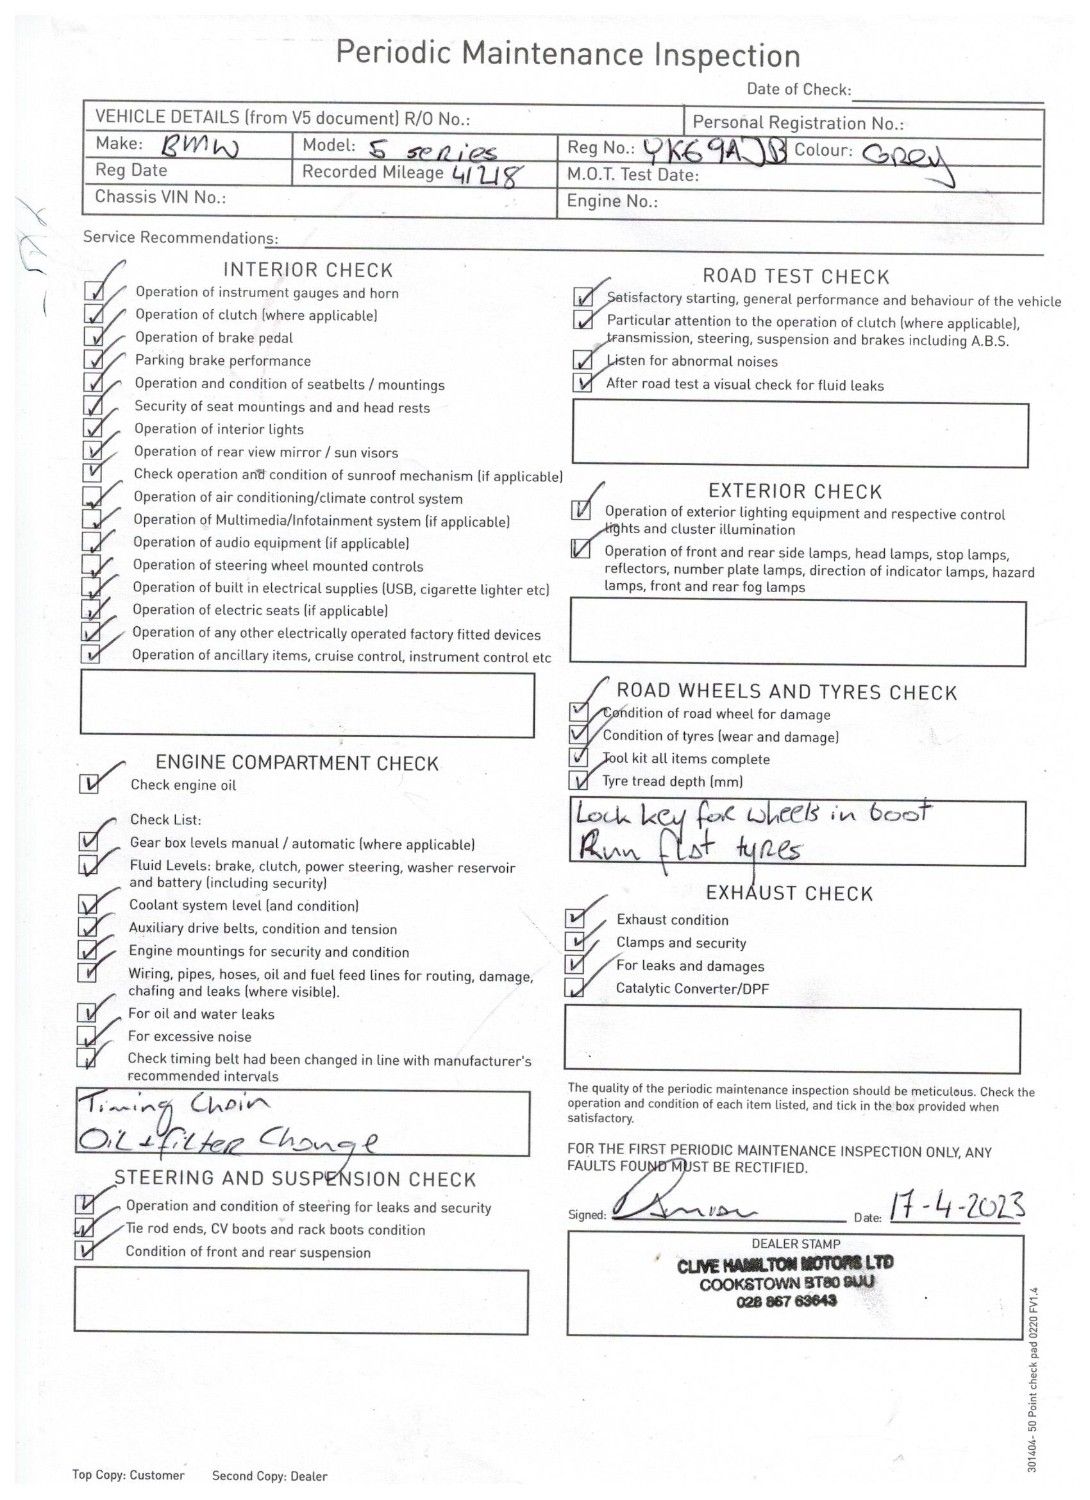 Periodic Maintenance Inspection
Date of Check:
VEHICLE DETAILS (from V5 document) R/O No.:
Personal Registration No.:
Make: BMW
Model: 5 series
Reg No.: YK69AJB
Colour: Grey
Reg Date
Recorded Mileage 41218
M.O.T. Test Date:
Chassis VIN No.:
Engine No.:
Service Recommendations:
INTERIOR CHECK
Operation of instrument gauges and horn
Operation of clutch (where applicable)
Operation of brake pedal
Parking brake performance
Operation and condition of seatbelts / mountings
Security of seat mountings and and head rests
Operation of interior lights
Operation of rear view mirror / sun visors
Check operation and condition of sunroof mechanism (if applicable)
Operation of air conditioning/climate control system
Operation of Multimedia/Infotainment system (if applicable)
Operation of audio equipment (if applicable)
Operation of steering wheel mounted controls
Operation of built in electrical supplies (USB, cigarette lighter etc)
Operation of electric seats (if applicable)
Operation of any other electrically operated factory fitted devices
Operation of ancillary items, cruise control, instrument control etc
ENGINE COMPARTMENT CHECK
Check engine oil
Check List:
Gear box levels manual / automatic (where applicable)
Fluid Levels: brake, clutch, power steering, washer reservoir
and battery (including security)
Coolant system level (and condition)
Auxiliary drive belts, condition and tension
Engine mountings for security and condition
Wiring, pipes, hoses, oil and fuel feed lines for routing, damage,
chafing and leaks (where visible).
For oil and water leaks
For excessive noise
Check timing belt had been changed in line with manufacturer's
recommended intervals
Timing Chain
Oil + filter Change
STEERING AND SUSPENSION CHECK
Operation and condition of steering for leaks and security
Tie rod ends, CV boots and rack boots condition
Condition of front and rear suspension
ROAD TEST CHECK
Satisfactory starting, general performance and behaviour of the vehicle
Particular attention to the operation of clutch (where applicable),
transmission, steering, suspension and brakes including A.B.S.
Listen for abnormal noises
After road test a visual check for fluid leaks
EXTERIOR CHECK
Operation of exterior lighting equipment and respective control
lights and cluster illumination
Operation of front and rear side lamps, head lamps, stop lamps,
reflectors, number plate lamps, direction of indicator lamps, hazard
lamps, front and rear fog lamps
ROAD WHEELS AND TYRES CHECK
Condition of road wheel for damage
Condition of tyres (wear and damage)
Tool kit all items complete
Tyre tread depth (mm)
Lock key for wheels in boot
Run flat tyres
EXHAUST CHECK
Exhaust condition
Clamps and security
For leaks and damages
Catalytic Converter/DPF
The quality of the periodic maintenance inspection should be meticulous. Check the
operation and condition of each item listed, and tick in the box provided when
satisfactory.
FOR THE FIRST PERIODIC MAINTENANCE INSPECTION ONLY, ANY
FAULTS FOUND MUST BE RECTIFIED.
Signed:
Date: 17-4-2023
DEALER STAMP
CLIVE HAMILTON MOTORS LTD
COOKSTOWN BT80 9UU
028 867 63643
301404- 50 Point check pad 0220 FV1.4
Top Copy: Customer
Second Copy: Dealer